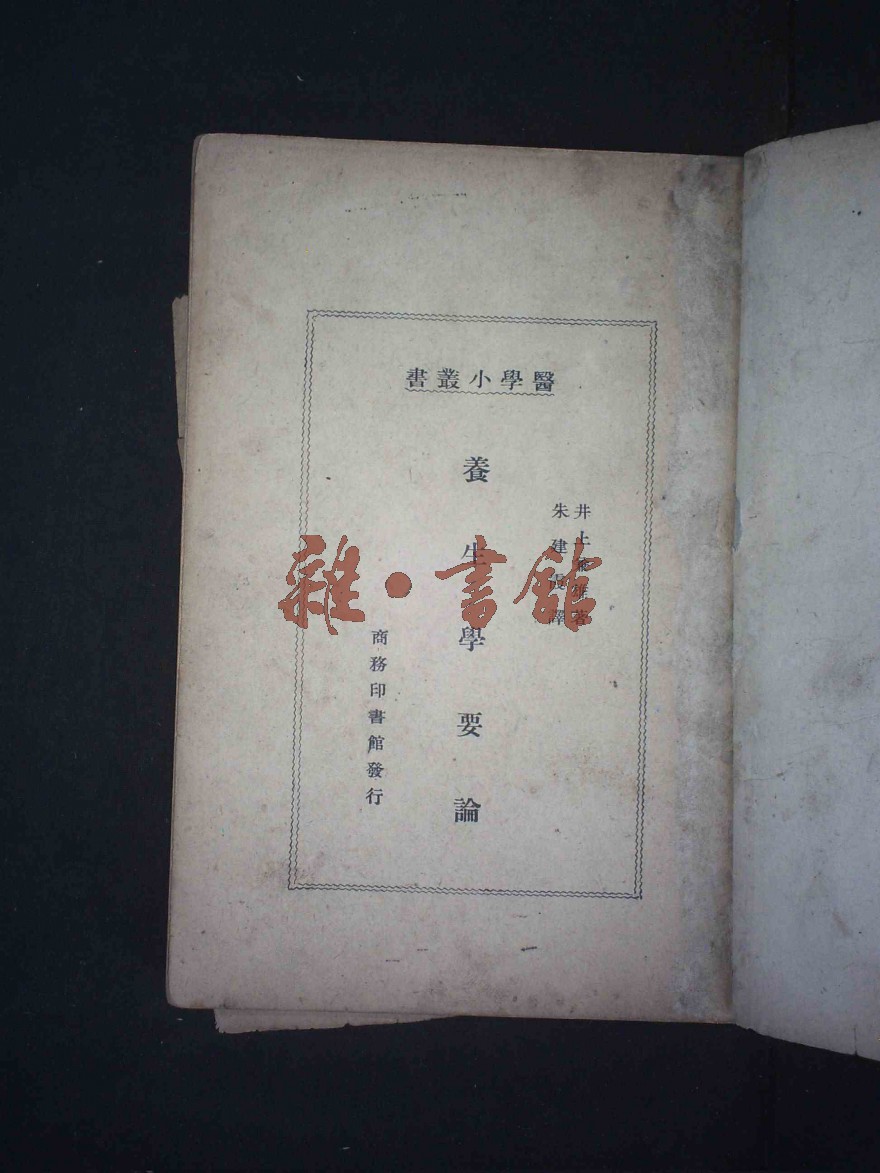 醫學小叢書
井上兼雄著
朱建霞譯
養生學要論
商務印書館發行
雜·書館